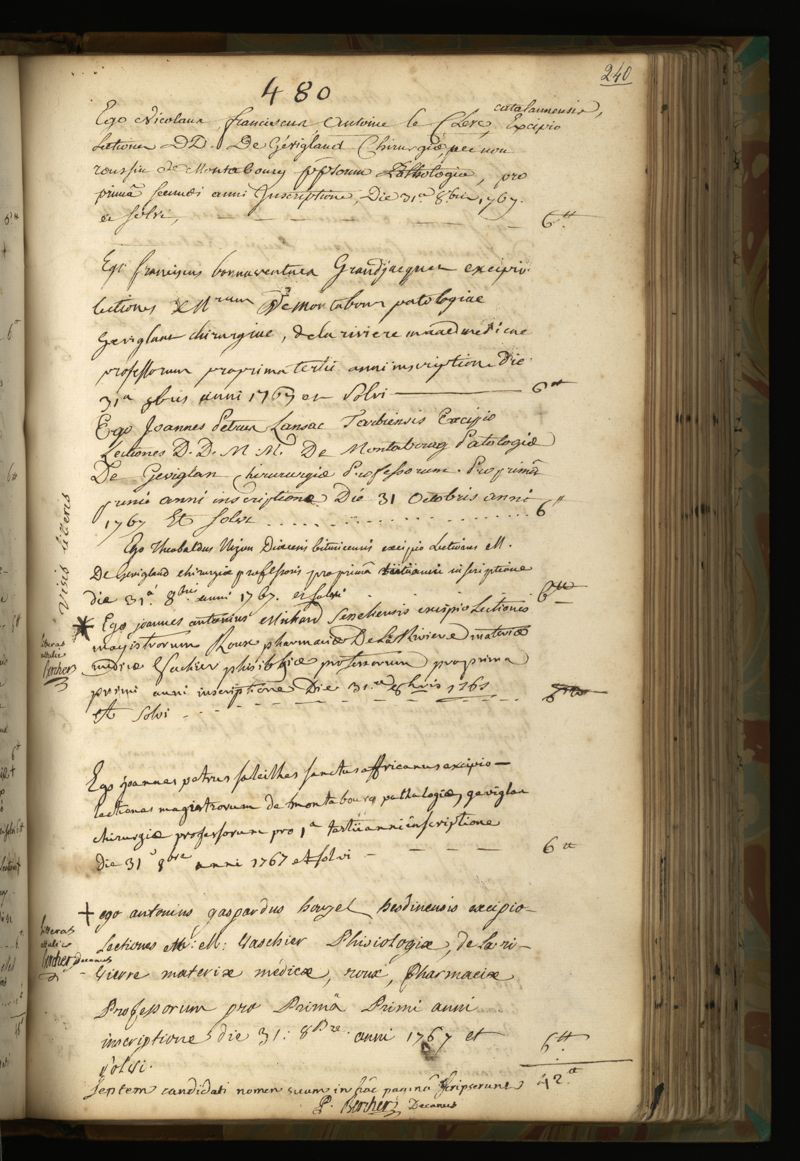 240
480
Ego Nicolaus franciscus Antoine le Clerc, catalaunensis, Excipio
Lectiones DD. De Gévigland Chirurgiæ nec non
roussin de Montabourg ppforum Pathologiæ, pro
primâ secundi anni Inscriptione, Die 31a 8bris 1767.
et solvi, - - - 6tt
Ego franciscus bonnaventura Grandjacquet excipio
lectiones Mrum De montabour patologiae
Geviglant chirurgiae, de la riviere
professorum pro prima tertii anni inscriptione die
31a 8bris anni 1767 et Solvi 6tt
Ego Joannes Petrus Lansac Tarbiensis Excipio
Lectiones D.D. M.M. De Montabourg Patologiæ
De Geviglan chirurgiæ Professorum. Pro primâ
primi anni inscriptione Die 31 Octobris anni
1767 Et Solvi .......... 6tt
Ego Theobaldus Dioecesis bituricensis excipio Lectiones M.
De Gevigland chirurgiæ professoris pro primâ tertii anni inscriptione
die 31a. 8bris anni 1767. et solvi 6tt
viris litteris
Ego joannes antonius excipio Lectiones
magistrorum Roux pharmaciæ De La Riviere materiæ
medicæ Vachier phisiologiæ professorum pro prima
primi anni inscriptione Die 31.a 8bris 1767
et Solvi 6tt
litteras
attulit
Bercher
Ego joannes petrus saleilhes sanctus affricanus excipio
lectiones magistrorum de montabourg pathalogiæ, geviglan
chirurgiæ professorum pro 1a tertii anni inscriptione
die 31 8bre anni 1767 et solvi - - - 6tt
+ ego antonius gaspardus houzel hesdinensis excipio
Lectiones M: M: Vaschier Phisiologiæ, de la ri-
vierre materiæ médicæ, roux, Pharmaciæ
Professorum pro Primâ Primi anni
inscriptione die 31: 8bre. anni 1767 et
solvi. 6tt
litteras
attulit
Bercher Decanus
Septem candidati nomen suum in hâc paginâ scripserunt 42tt
P. Bercher Decanus